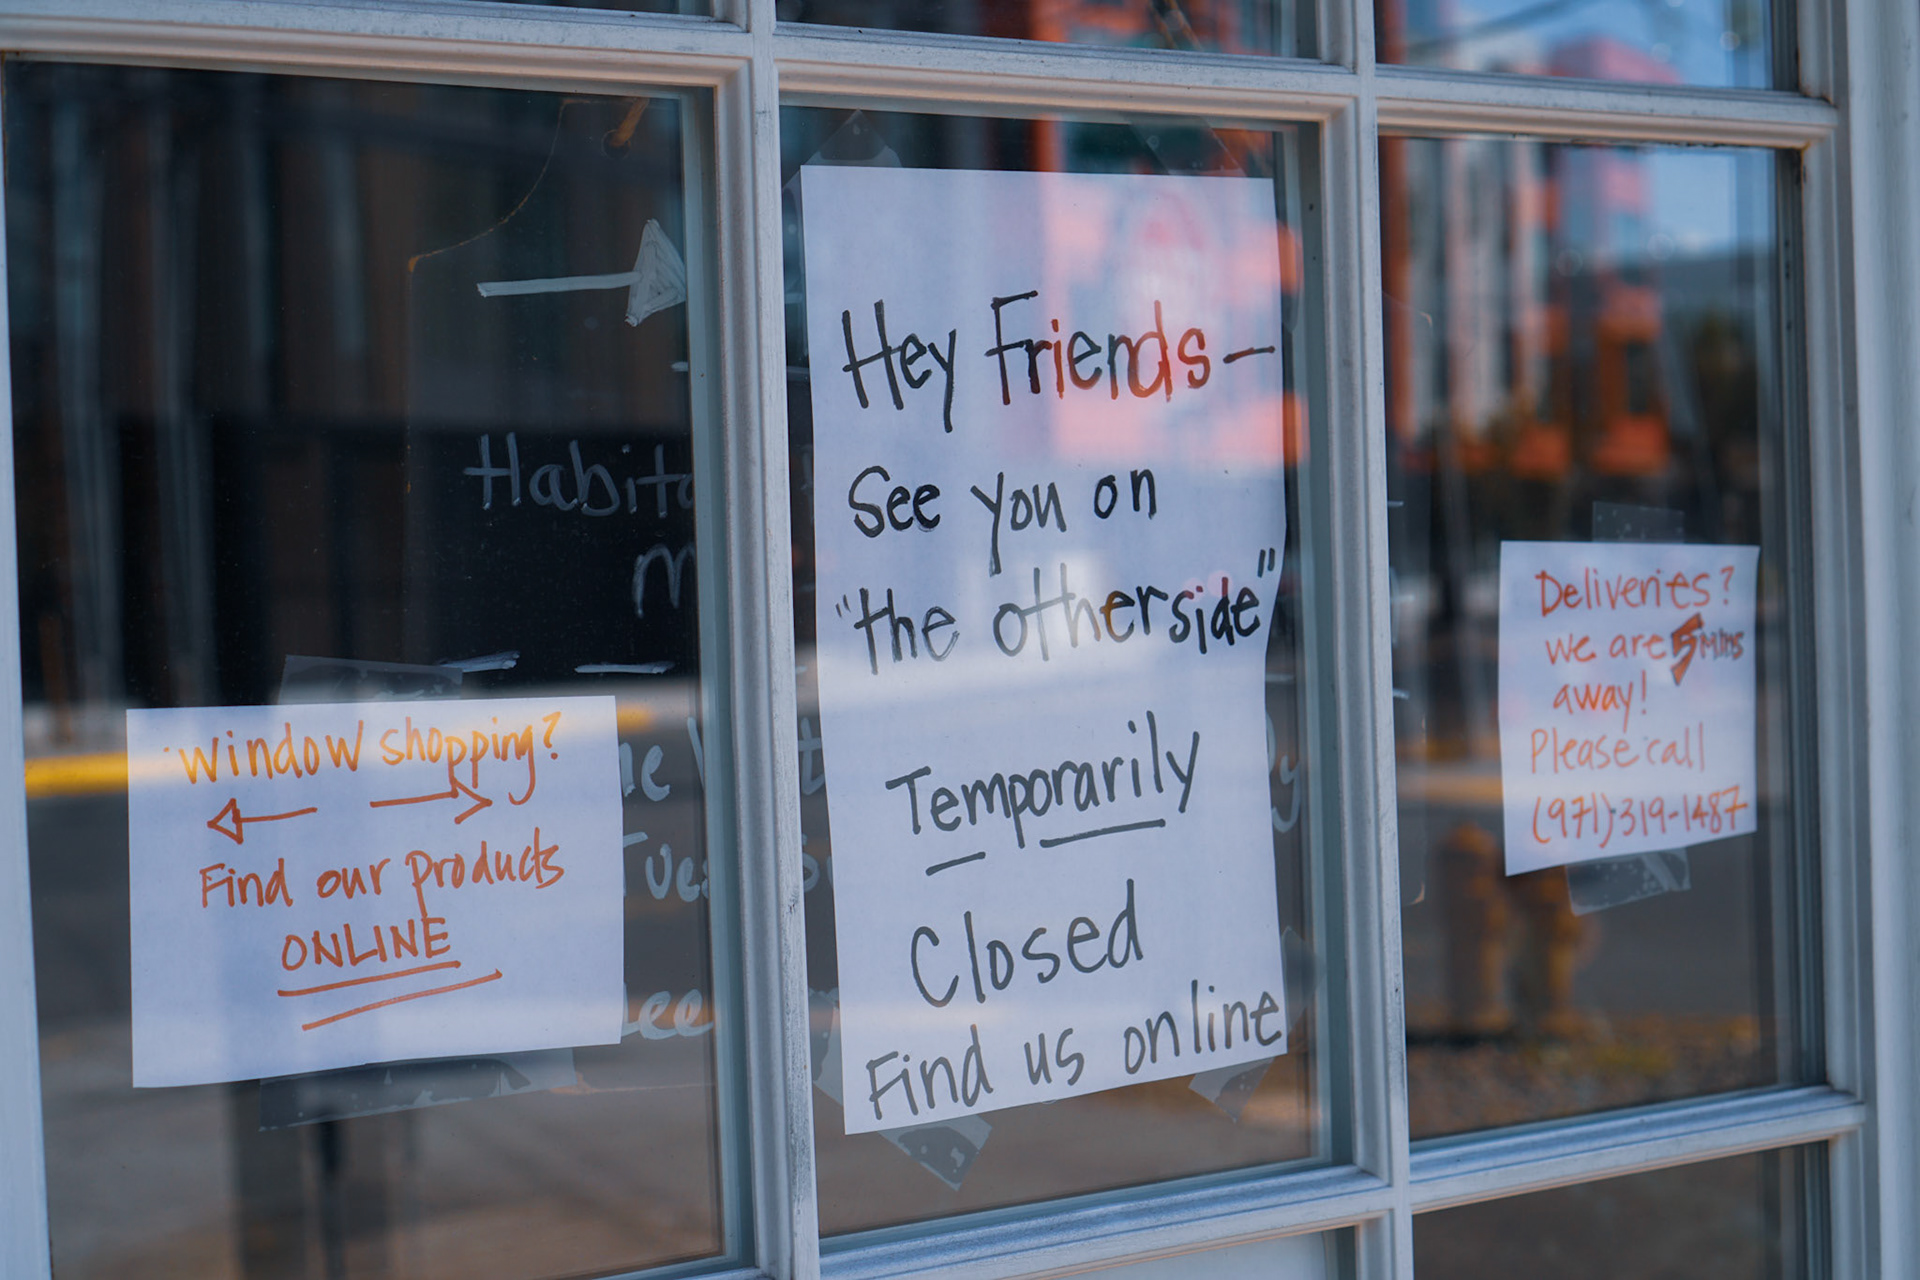 Window shopping?
Find our products
ONLINE
Hey Friends–
See you on
"the otherside"
Temporarily
Closed
Find us online
Deliveries?
we are 5 Mins
away!
Please call
(971)-319-1487